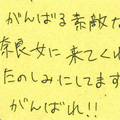 がんばる素敵な
奈良女に来てくれ
たのしみにしてます
がんばれ!!